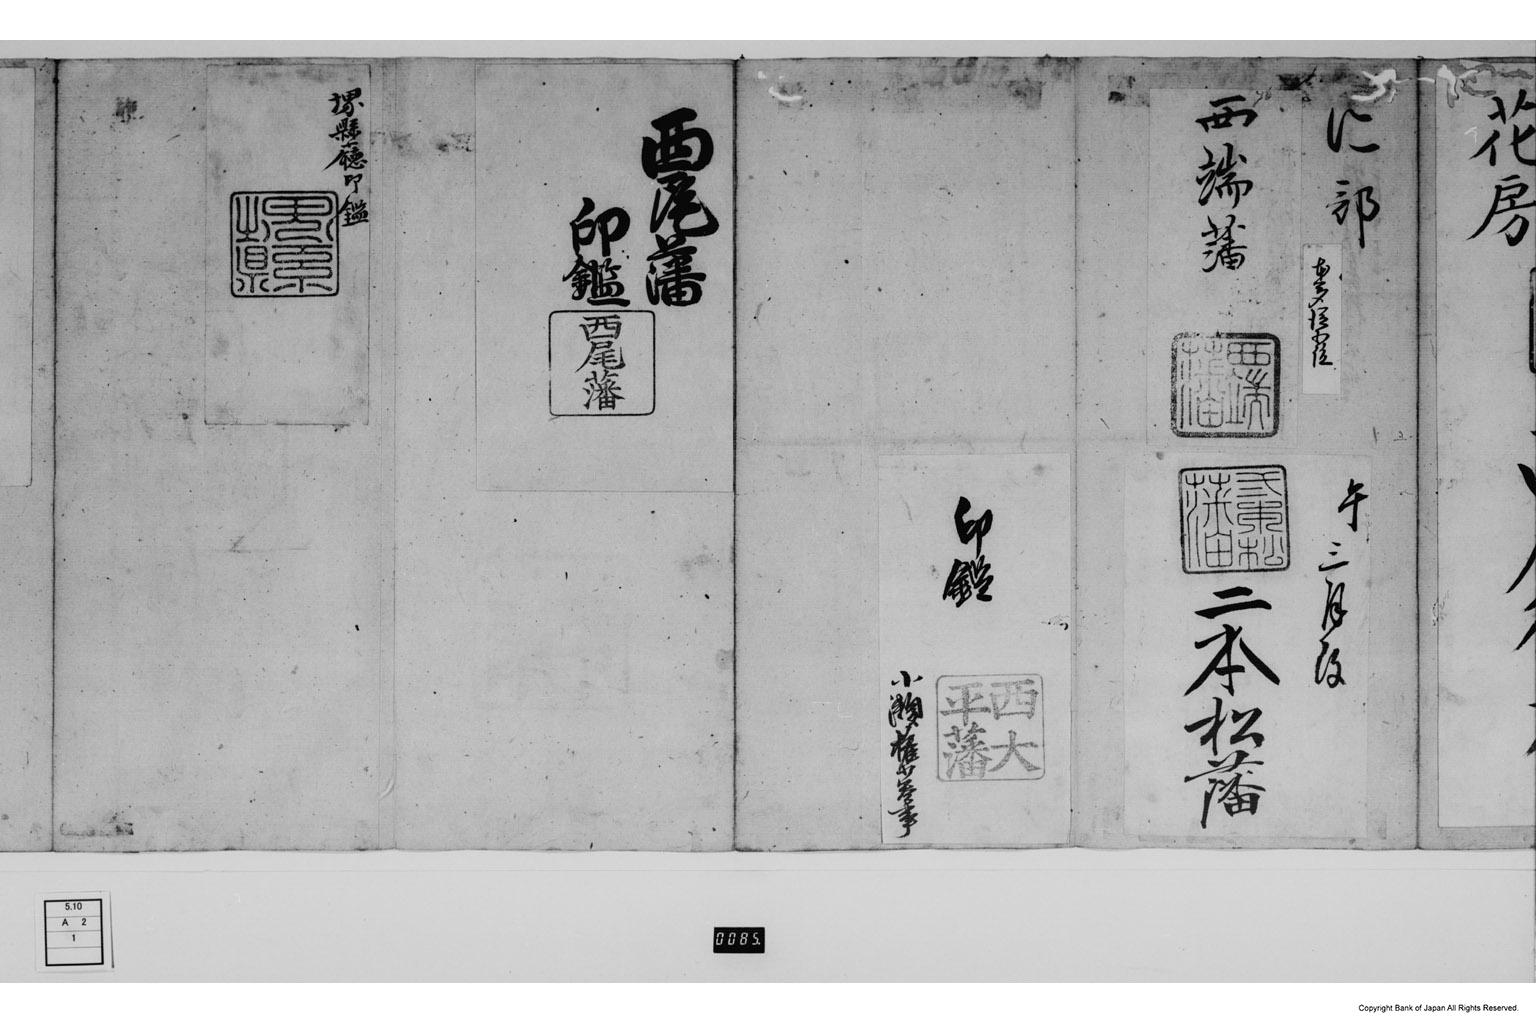 花房
に部
西端藩
西端藩
本多
午三月改
弐本松藩
二本松藩
印鑑
西大平藩
小瀬権少参事
西尾藩
印鑑
西尾藩
堺縣廳印鑑
堺縣
5.10
A 2
1
0085.
Copyright Bank of Japan All Rights Reserved.